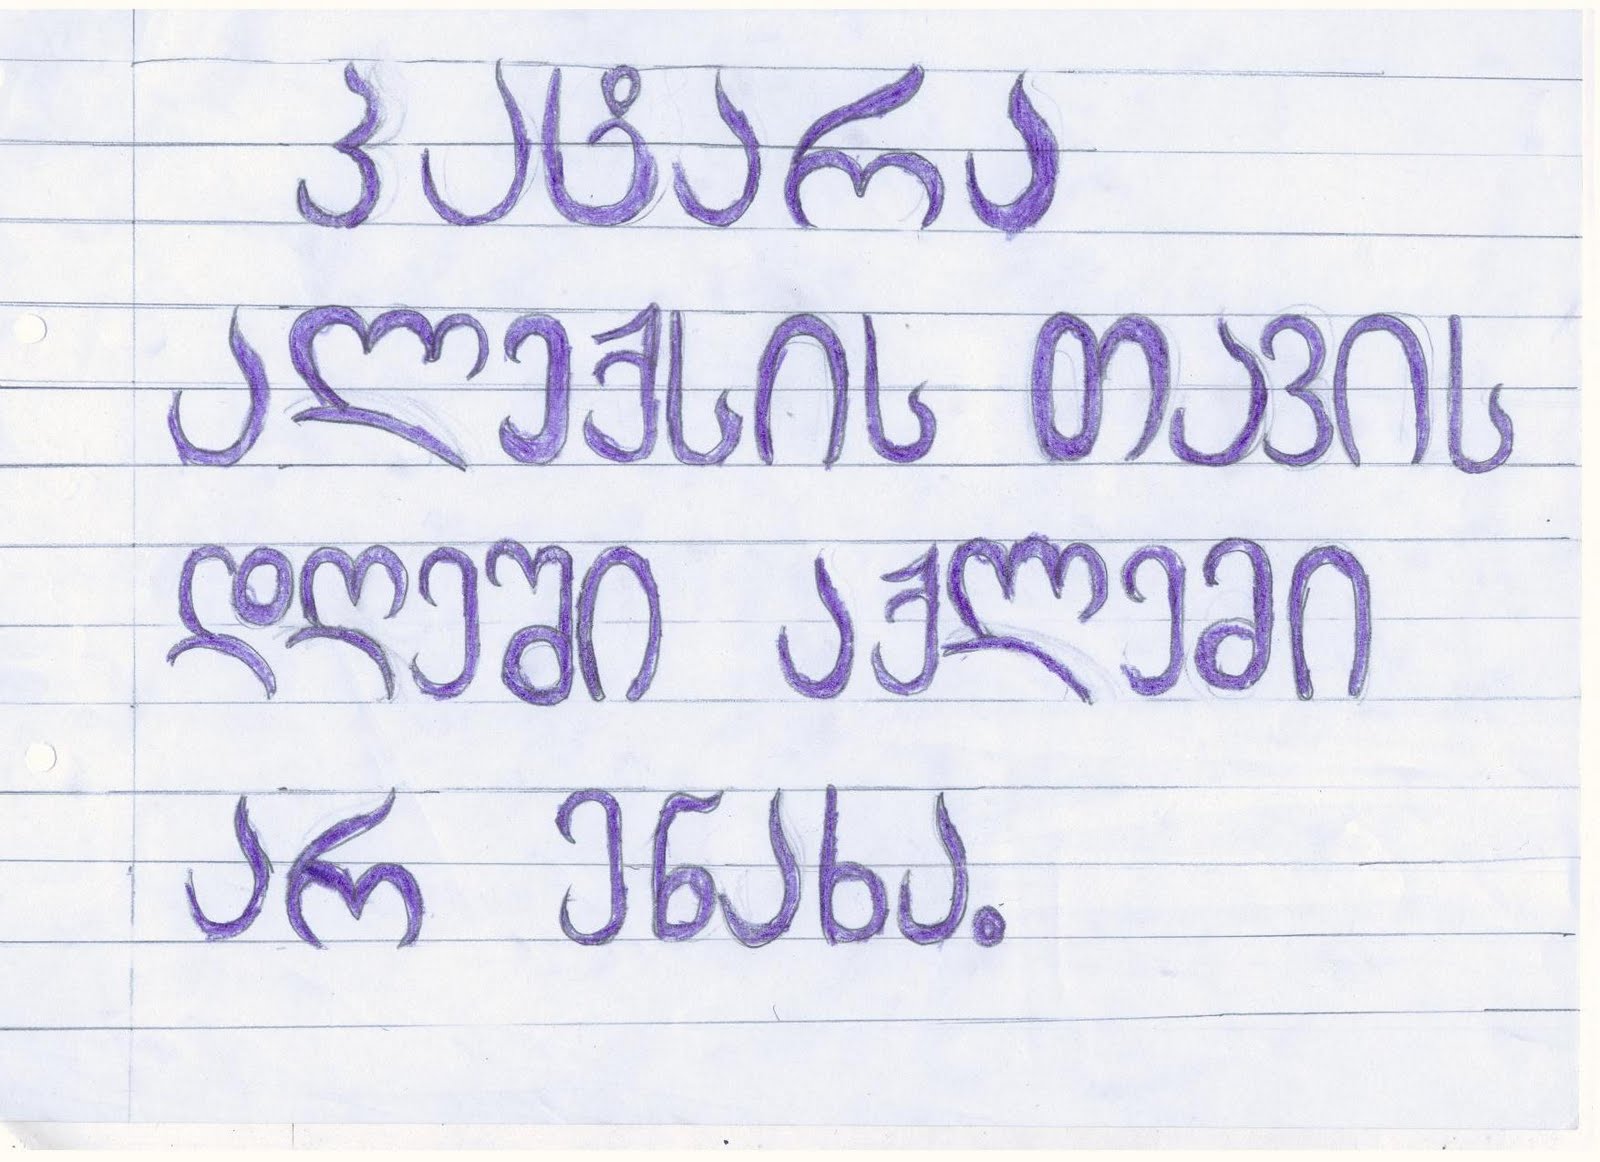 პატარა
ალექსის თავის
დღეში აქლემი
არ ენახა.